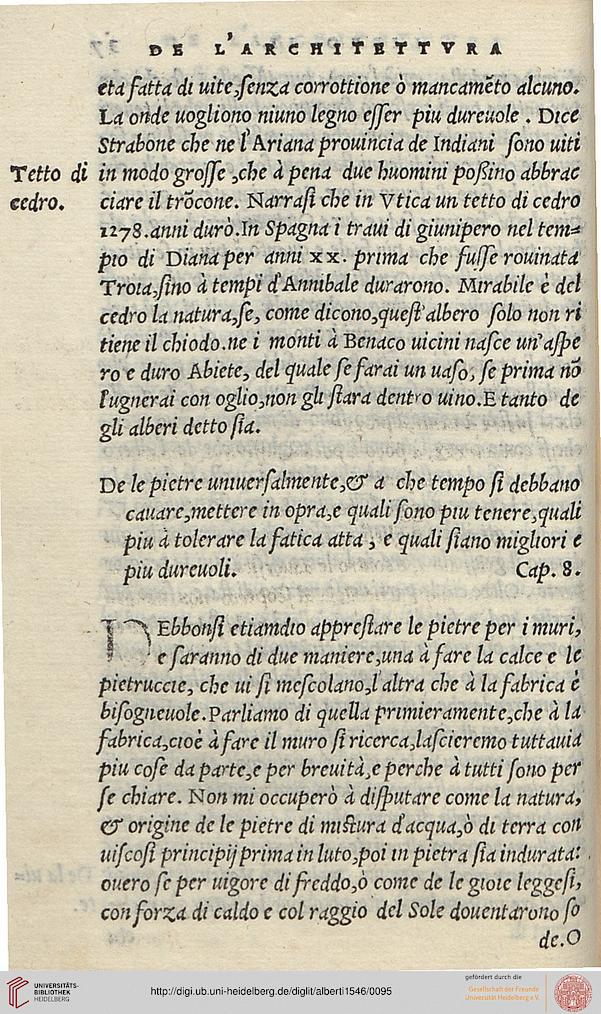 DE L'ARCHITETTVRA
eta fatta di uite,senza corrottione ò mancamẽto alcuno.
La onde uogliono niuno legno esser piu dureuole . Dice
Strabone che ne l'Ariana prouincia de Indiani sono uiti
Tetto di in modo grosse ,che à pena due huomini poßino abbrac
cedro. ciare il trõcone. Narrasi che in Vtica un tetto di cedro
1278.anni durò.In Spagna i traui di giunipero nel tem=
pio di Diana per anni xx. prima che fusse rouinata
Troia,sino à tempi d'Annibale durarono. Mirabile è del
cedro la natura,se, come dicono,quest'albero solo non ri
tiene il chiodo.ne i monti à Benaco uicini nasce un'aspe
ro e duro Abiete, del quale se farai un uaso, se prima nõ
l'ugnerai con oglio,non gli stara dentro uino.E tanto de
gli alberi detto sia.
De le pietre uniuersalmente,& a che tempo si debbano
cauare,mettere in opra,e quali sono piu tenere,quali
piu à tolerare la fatica atta , e quali siano migliori e
piu dureuoli. Cap. 8.
DEbbonsi etiamdio apprestare le pietre per i muri,
e saranno di due maniere,una à fare la calce e le
pietruccie, che ui si mescolano,l'altra che à la fabrica è
bisogneuole.Parliamo di quella primieramente,che à la
fabrica,cioè à fare il muro si ricerca,lascieremo tuttauia
piu cose da parte,e per breuità,e perche à tutti sono per
se chiare. Non mi occuperò à disputare come la natura,
& origine de le pietre di mistura d'acqua,ò di terra con
uiscosi principij prima in luto,poi in pietra sia indurata:
ouero se per uigore di freddo,ò come de le gioie leggesi,
con forza di caldo e col raggio del Sole douentarono so
de.O
UNIVERSITÄTS-
BIBLIOTHEK
HEIDELBERG
http://digi.ub.uni-heidelberg.de/diglit/alberti1546/0095
gefördert durch die
Gesellschaft der Freunde
Universität Heidelberg e.V.